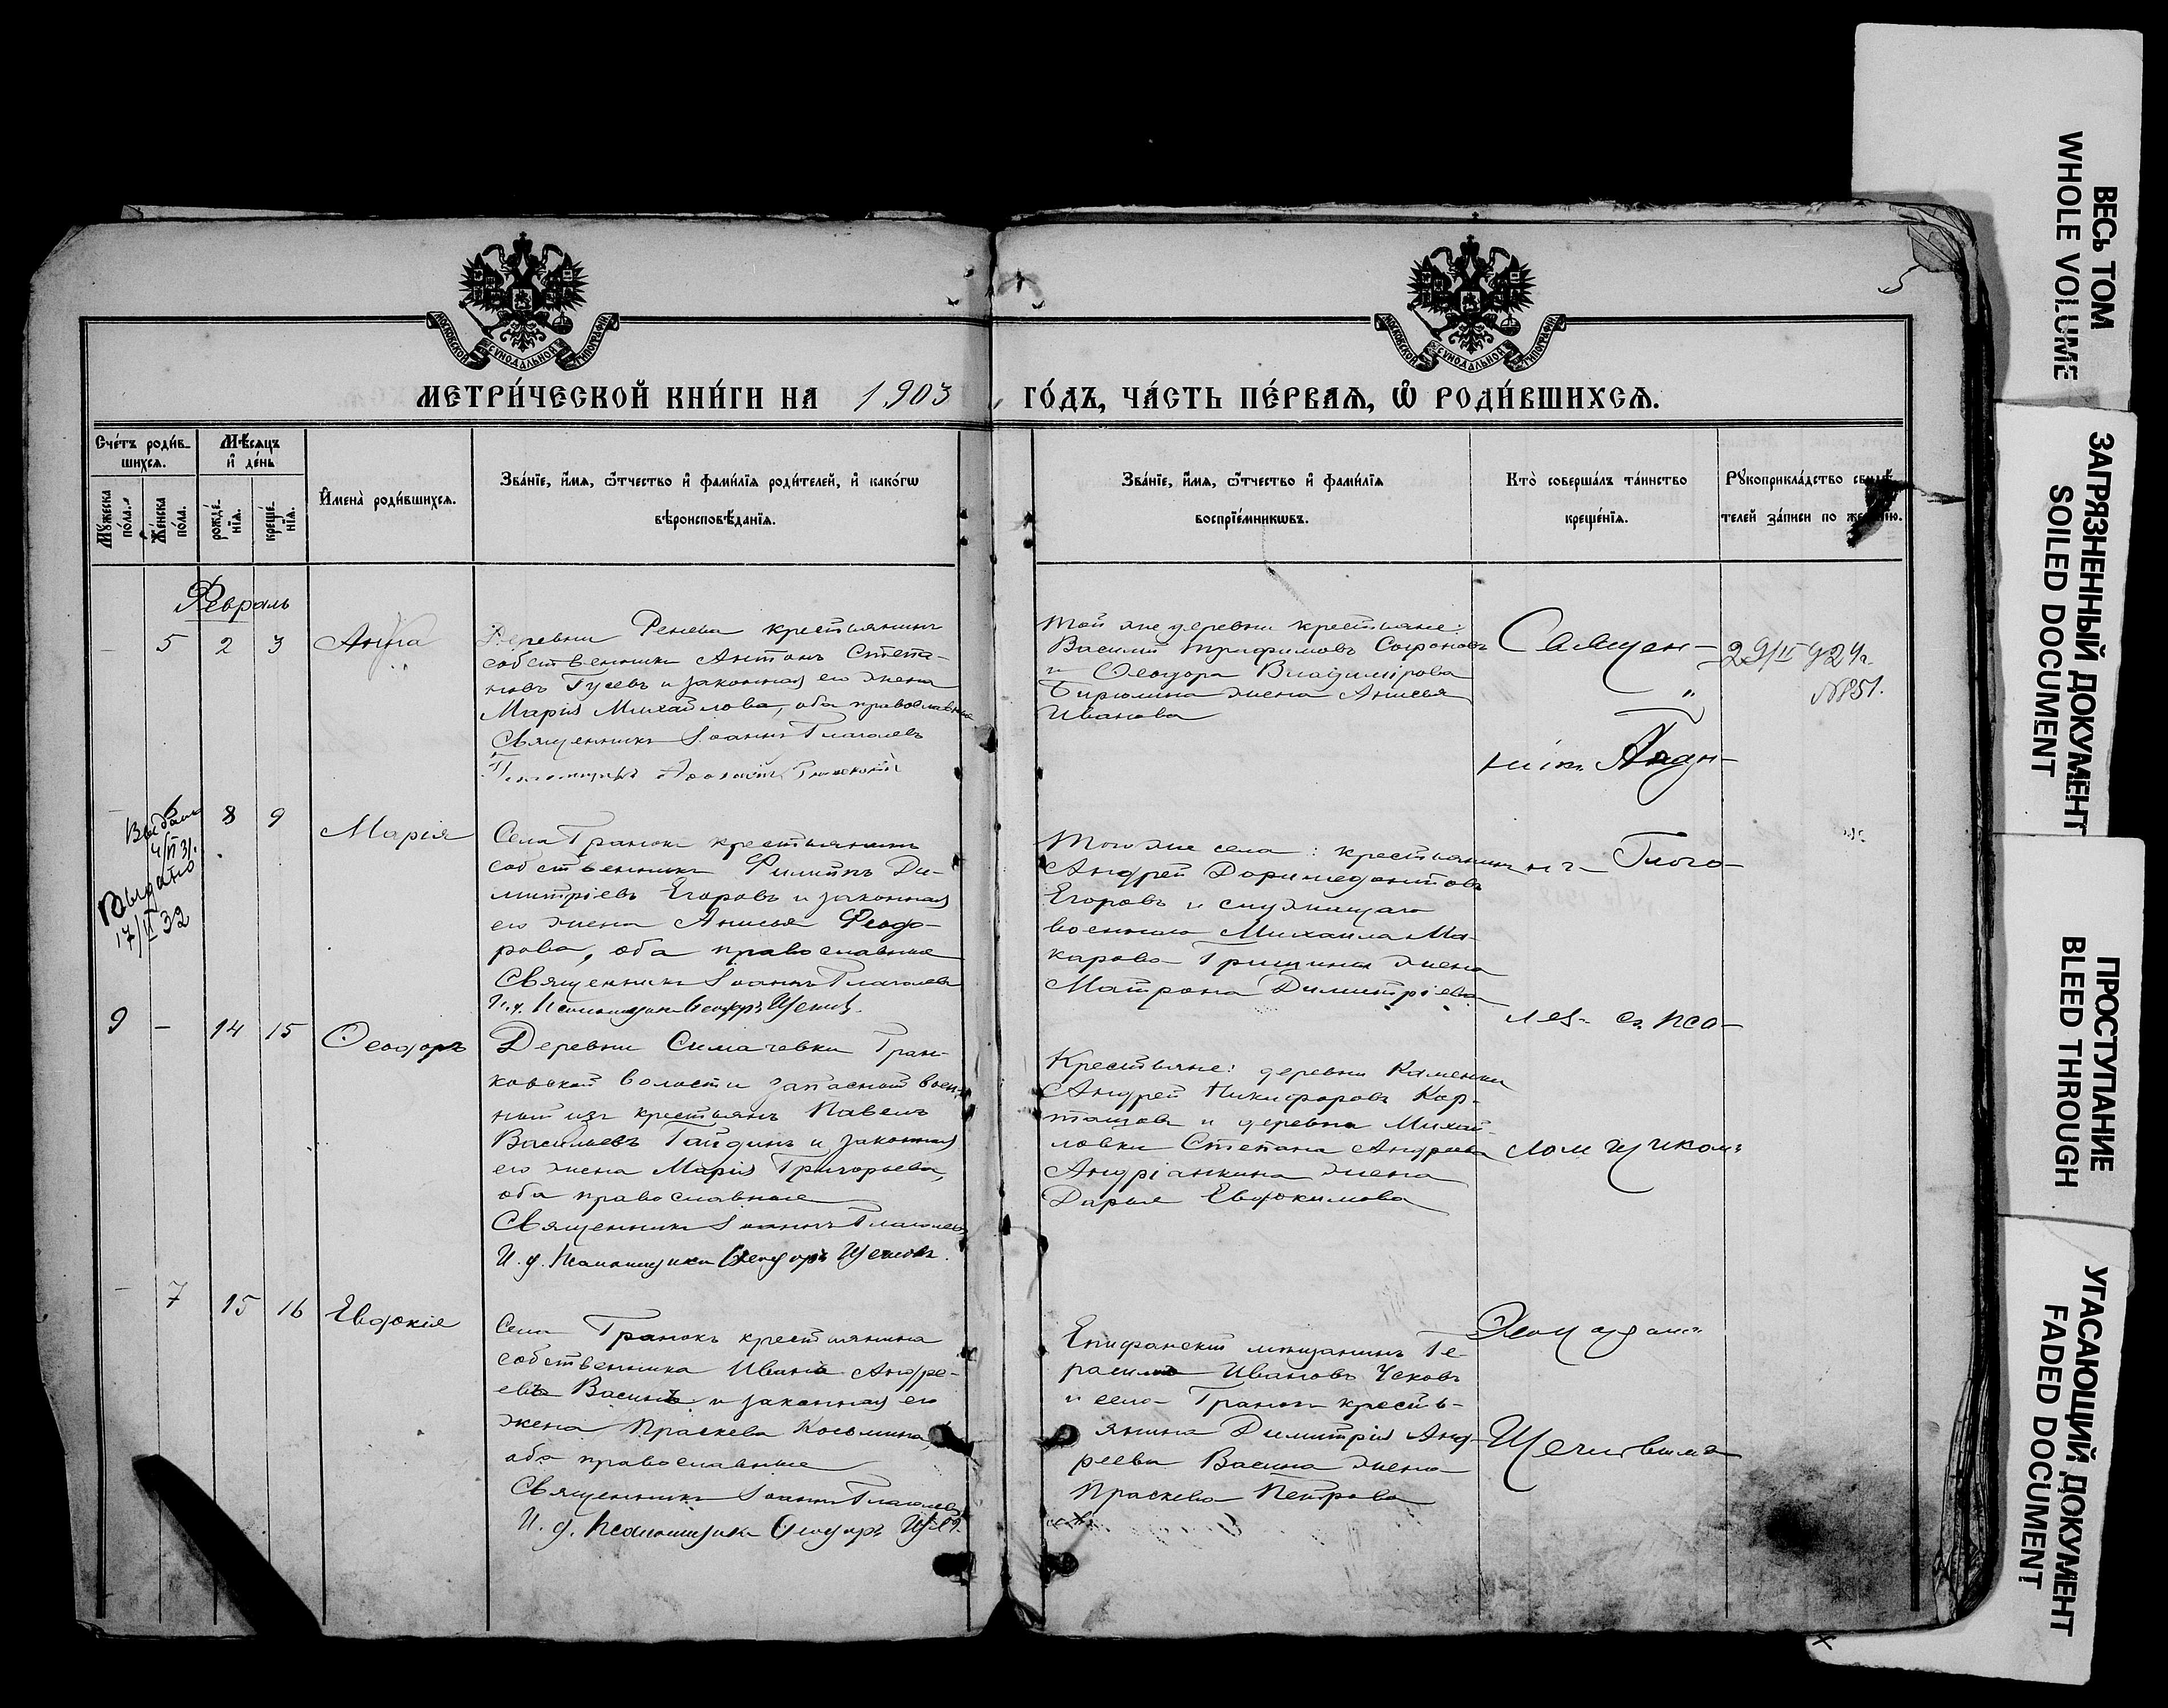 МОСКОВСКОЙ СѴНОДАЛЬНОЙ ТИПОГРАФІИ
МОСКОВСКОЙ СѴНОДАЛЬНОЙ ТИПОГРАФІИ
МЕТРИ́ЧЕСКОЙ КНИ́ГИ НА 1903 ГО́ДЪ, ЧА́СТЬ ПЕ́РВАѦ, Ѡ РОДИ́ВШИХСѦ.
Сче́тъ роди́в-
шихсѧ.
Мꙋ́жеска по́ла.
Же́нска по́ла.
Мѣ́сѧцъ
и де́нь
рожде́-нїѧ.
креще́-нїѧ.
Имена̀ роди́вшихсѧ.
Зва́нїе, и́мѧ, ѻ́тчество и фами́лїѧ роди́телей, и како́гѡ
вѣроисповѣ́данїѧ.
Зва́нїе, и́мѧ, ѻ́тчество и фами́лїѧ
воспрїе́мникѡвъ.
Кто̀ соверша́лъ та́инство
креще́нїѧ.
Рꙋкоприкла́дство свидѣ́-
телей за́писи по жела́нїю.
Февраль
5 2 3 Анна
Деревни Ренева крестьянинъ
собственникъ Антонъ Степа-
новъ Гусевъ и законная его жена
Марія Михайлова, оба православные
Священникъ Іоаннъ Глаголевъ
Той же деревни крестьяне:
Василій Трифимовъ Софоновъ
и Ѳеодора Владимірова
Бирюлина жена Анисья
Иванова
29/II 924г.
№851.
6 8 9 Марія
Выдано
4/II 31.
Выдано
17/II 32
Села Гранокъ крестьянинъ
собственникъ Филиппъ Ди-
митріевъ Егоровъ и законная
его жена Анисья Ѳеодо-
рова, оба православные
Священникъ Іоаннъ Глаголевъ
И. д. Псаломщика Ѳеодоръ
Того же села: крестьянинъ
Андрей Доримедонтовъ
Егоровъ и служащаго
военнаго Михаила Ма-
карова Гришина жена
Матрона Димитріева
9 – 14 15 Ѳеодоръ
Деревни Симачевки Гран-
ковской волости запасной воен-
ный изъ крестьянъ Павелъ
Васильевъ Гайдинъ и законная
его жена Марія Григорьева,
оба православные
Священникъ Іоаннъ Глаголевъ
И. д. Псаломщика Ѳеодоръ
Крестьяне: деревни Каменки
Андрей Никифоровъ Кар-
ташовъ и деревни Михай-
ловки Степана Андреева
Андріанкина жена
Дарья Евдокимова
– 7 15 16 Евдокія
Села Гранокъ крестьянина
собственника Ивана Андре-
евъ Васинъ и законная его
жена Праскева Косьмина,
оба православные
Священникъ Іоаннъ Глаголевъ
И. д. Псаломщика Ѳеодоръ
Епифанскій мещанинъ Ге-
расимъ Ивановъ Чековъ
и села Гранокъ кресть-
янина Димитрія Анд-
реева Васина жена
Праскева Петрова
Священ-
никъ Анд-
Глаго-
лев. съ пса-
ломщикомъ
ВЕСЬ ТОМ
WHOLE VOLUME
ЗАГРЯЗНЕННЫЙ ДОКУМЕНТ
SOILED DOCUMENT
ПРОСТУПАНИЕ
BLEED THROUGH
УГАСАЮЩИЙ ДОКУМЕНТ
FADED DOCUMENT